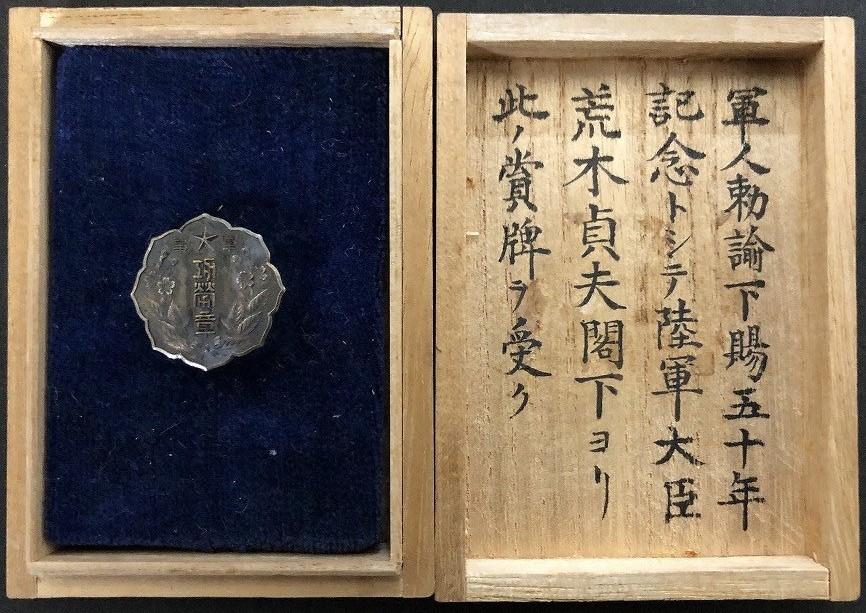 軍人勅諭下賜五十年
記念トシテ陸軍大臣
荒木貞夫閣下ヨリ
此ノ賞牌ヲ受ク
功労章